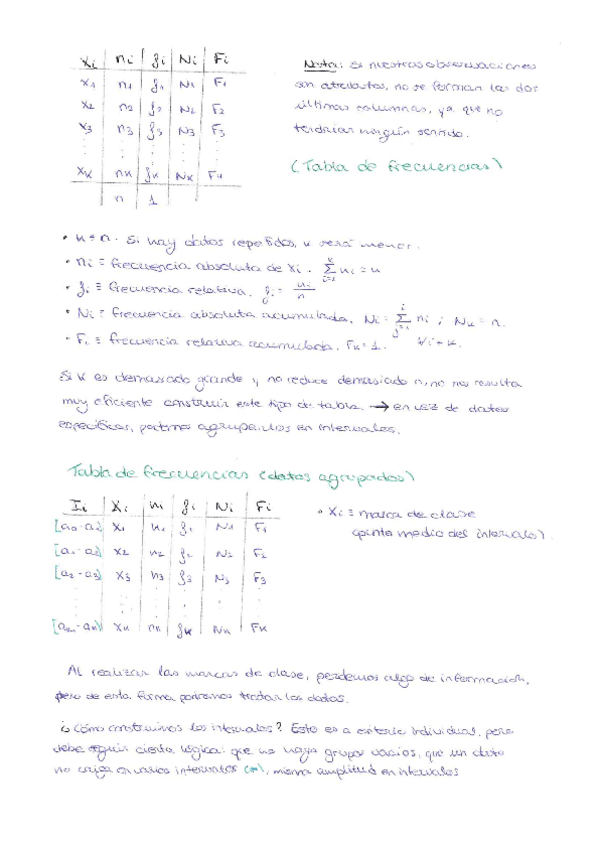 Xi ni fi Ni Fi
X1 n1 f1 N1 F1
X2 n2 f2 N2 F2
X3 n3 f3 N3 F3
⋮ ⋮ ⋮ ⋮ ⋮
XK nK fK NK F4
n 1
Nota: Si nuestras observaciones
son atributos, no se forman las dos
últimas columnas, ya que no
tendrían ningún sentido.
(Tabla de frecuencias)
• k = n. Si hay datos repetidos, k será menor.
• ni ≡ frecuencia absoluta de xi. Σ ni = n
• fi ≡ frecuencia relativa. fi = ni/n
• Ni ≡ frecuencia absoluta acumulada. Ni = Σ ni ; NK = n.
• Fi ≡ frecuencia relativa acumulada. FK = 1.
Si K es demasiado grande y no reduce demasiado n, no nos resulta
muy eficiente construir este tipo de tabla → en vez de datos
específicos, podemos agruparlos en intervalos.
Tabla de frecuencias (datos agrupados)
Ii Xi ni fi Ni Fi
[a0 - a1) X1 n1 f1 N1 F1
[a1 - a2) X2 n2 f2 N2 F2
[a2 - a3) X3 n3 f3 N3 F3
⋮ ⋮ ⋮ ⋮ ⋮ ⋮
XK nK fK NK FK
• Xi ≡ marca de clase
(punto medio del intervalo).
Al realizar las marcas de clase, perdemos algo de información,
pero de esta forma podremos tratar los datos.
¿Cómo construimos los intervalos? Esto es a criterio individual, pero
debe seguir cierta lógica: que no haya grupos vacíos, que un dato
no caiga en varios intervalos (*), misma amplitud en intervalos